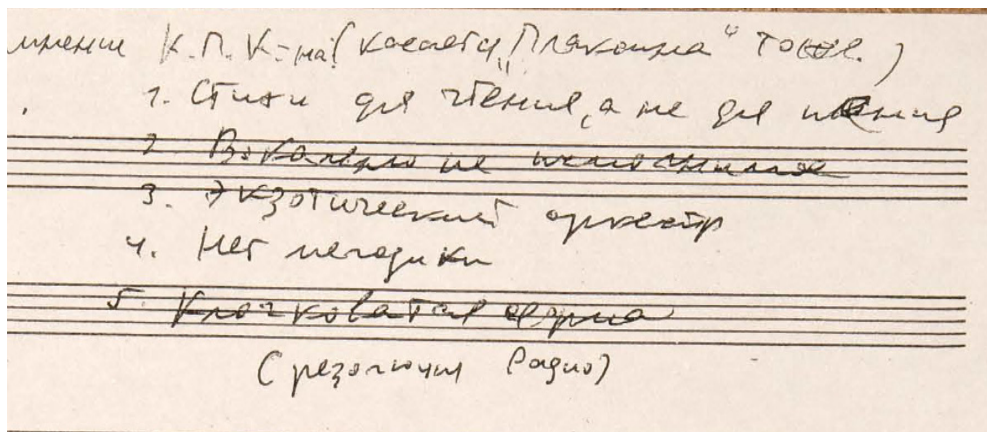 мнении К.П. К-на! (кассету „Плакоима“ тоже.)
1. Стихи для чтения, а не для пения
2 Вокально не исполнимое
3. Экзотический оркестр
4. Нет мелодики
5. Клочковатая форма
(резолюция Радио)